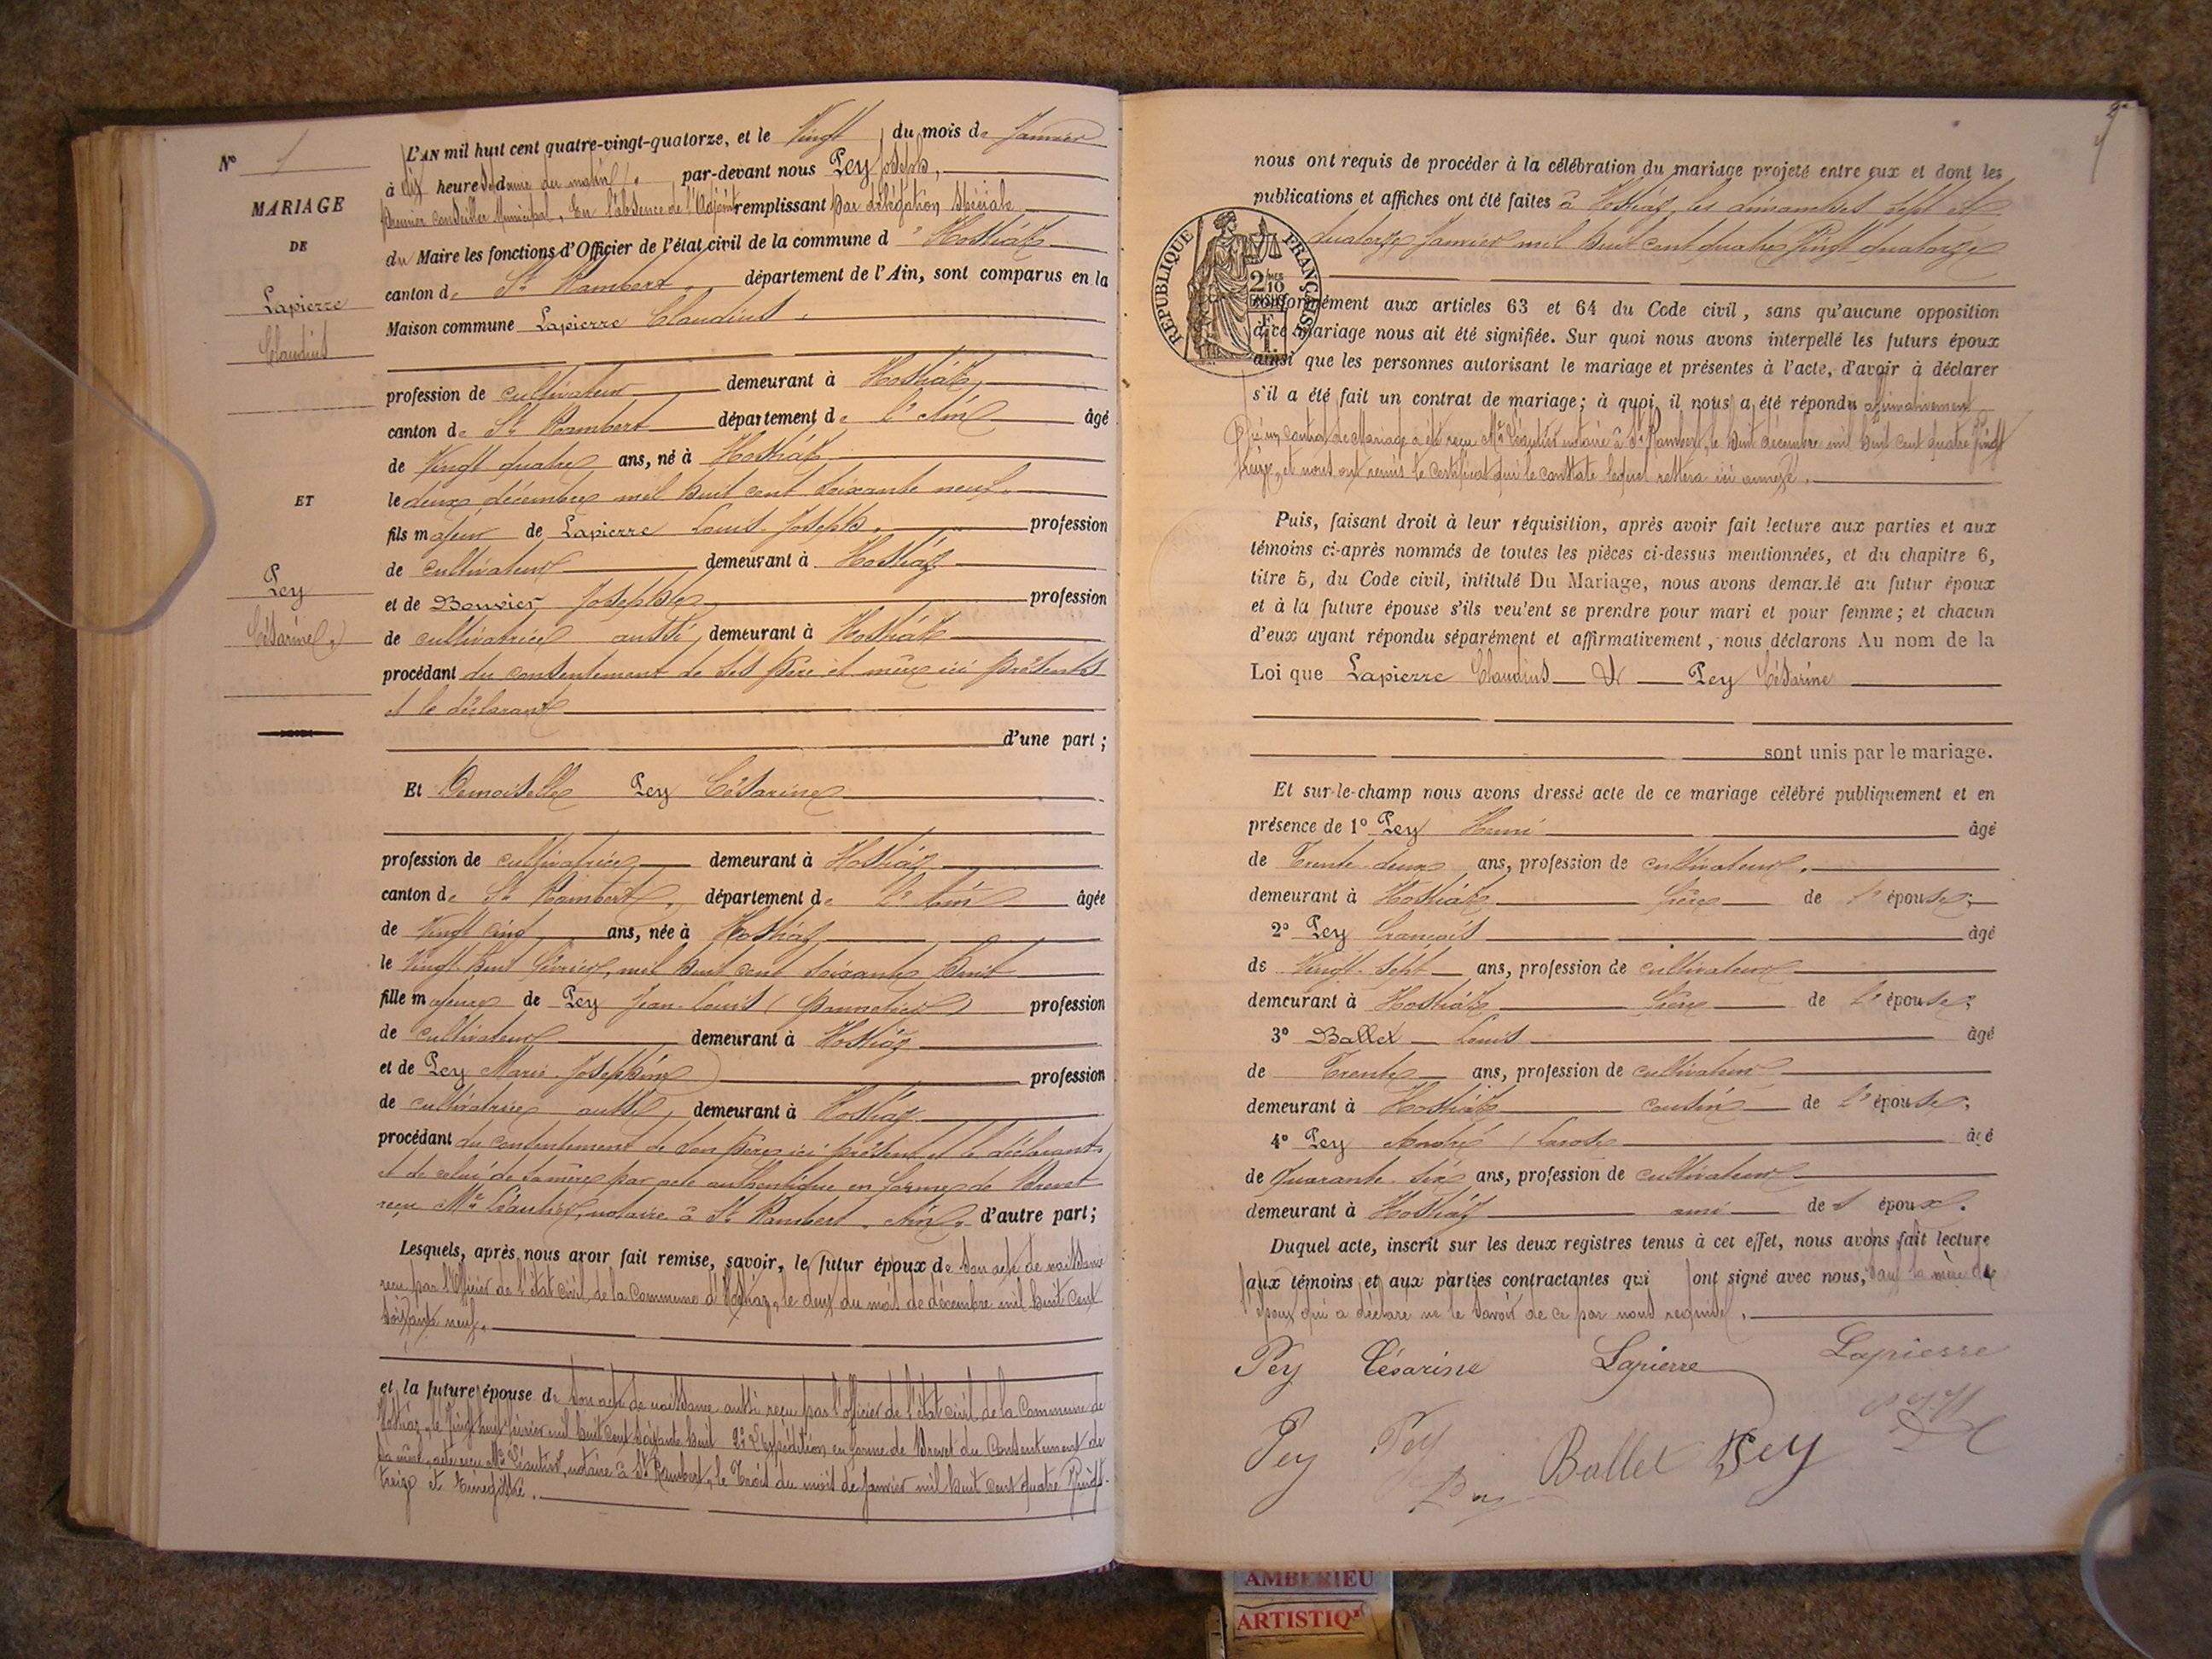 N° 1
MARIAGE
DE
Lapierre
Claudius
ET
Pey
Césarine
L'AN mil huit cent quatre-vingt-quatorze, et le Vingt du mois de Janvier
à dix heures du matin, par-devant nous Pey Joseph,
premier conseiller Municipal, En l'absence de l'Adjoint remplissant par délégation spéciale
du Maire les fonctions d'Officier de l'état civil de la commune d'Hostiaz
canton de St Rambert, département de l'Ain, sont comparus en la
Maison commune Lapierre Claudius,
profession de cultivateur demeurant à Hostiaz,
canton de St Rambert département de l'Ain âgé
de Vingt quatre ans, né à Hostiaz
le deux décembre mil huit cent soixante neuf.
fils majeur de Lapierre Louis Joseph, profession
de cultivateur demeurant à Hostiaz
et de Bouvier Josephte profession
de cultivatrice aussi, demeurant à Hostiaz
procédant du consentement de ses père et mère ici présents
et le déclarant
d'une part ;
Et Demoiselle Pey Césarine
profession de cultivatrice demeurant à Hostiaz
canton de St Rambert, département de l'Ain âgée
de Vingt cinq ans, née à Hostiaz
le Vingt huit Février, mil huit cent soixante huit
fille majeure de Pey Jean-Louis ( ) profession
de cultivateur demeurant à Hostiaz
et de Pey Marie Joséphine profession
de cultivatrice aussi, demeurant à Hostiaz
procédant du consentement de son père ici présent et le déclarant
et de celui de sa mère par acte authentique en forme de Brevet
reçu Me Léautier, notaire à St Rambert, Ain, d'autre part ;
Lesquels, après nous avoir fait remise, savoir, le futur époux de son acte de naissance
reçu par l'Officier de l'état civil de la commune d'Hostiaz, le deux du mois de décembre mil huit cent
soixante neuf.
et la future épouse de son acte de naissance aussi reçu par l'officier de l'état civil de la Commune de
Hostiaz, le Vingt huit février mil huit cent soixante huit 2° L'expédition en forme de Brevet du Consentement de
sa mère, acte reçu Me Léautier, notaire à St Rambert, le Trois du mois de Janvier mil huit cent quatre Vingt-
treize et enregistré.
nous ont requis de procéder à la célébration du mariage projeté entre eux et dont les
publications et affiches ont été faites à Hostiaz, les dimanches sept et
quatorze Janvier mil huit cent quatre Vingt quatorze
RÉPUBLIQUE FRANÇAISE
conformément aux articles 63 et 64 du Code civil, sans qu'aucune opposition
à ce mariage nous ait été signifiée. Sur quoi nous avons interpellé les futurs époux
ainsi que les personnes autorisant le mariage et présentes à l'acte, d'avoir à déclarer
s'il a été fait un contrat de mariage ; à quoi il nous a été répondu affirmativement
Qu'un contrat de Mariage a été reçu Me Léautier notaire à St Rambert, le huit décembre mil huit cent quatre Vingt
treize, et nous ont remis le certificat qui le constate lequel restera ici annexé.
Puis, faisant droit à leur réquisition, après avoir fait lecture aux parties et aux
témoins ci-après nommés de toutes les pièces ci-dessus mentionnées, et du chapitre 6,
titre 5, du Code civil, intitulé Du Mariage, nous avons demandé au futur époux
et à la future épouse s'ils veulent se prendre pour mari et pour femme ; et chacun
d'eux ayant répondu séparément et affirmativement, nous déclarons Au nom de la
Loi que Lapierre Claudius et Pey Césarine
sont unis par le mariage.
Et sur-le-champ nous avons dressé acte de ce mariage célébré publiquement et en
présence de 1° Pey Henri âgé
de Trente deux ans, profession de cultivateur,
demeurant à Hostiaz frère de l'épouse ;
2° Pey François âgé
de Vingt-sept ans, profession de cultivateur
demeurant à Hostiaz frère de l'épouse ;
3° Ballet Louis âgé
de Trente ans, profession de cultivateur
demeurant à Hostiaz cousin de l'épouse ;
4° Pey André âgé
de Quarante six ans, profession de cultivateur
demeurant à Hostiaz ami de l'époux.
Duquel acte, inscrit sur les deux registres tenus à cet effet, nous avons fait lecture
aux témoins et aux parties contractantes qui ont signé avec nous, sauf la mère de
l'époux qui a déclaré ne le savoir de ce par nous requise.
Pey Césarine Lapierre Lapierre
Pey Pey Ballet Pey
AMBERIEU
ARTISTIQ